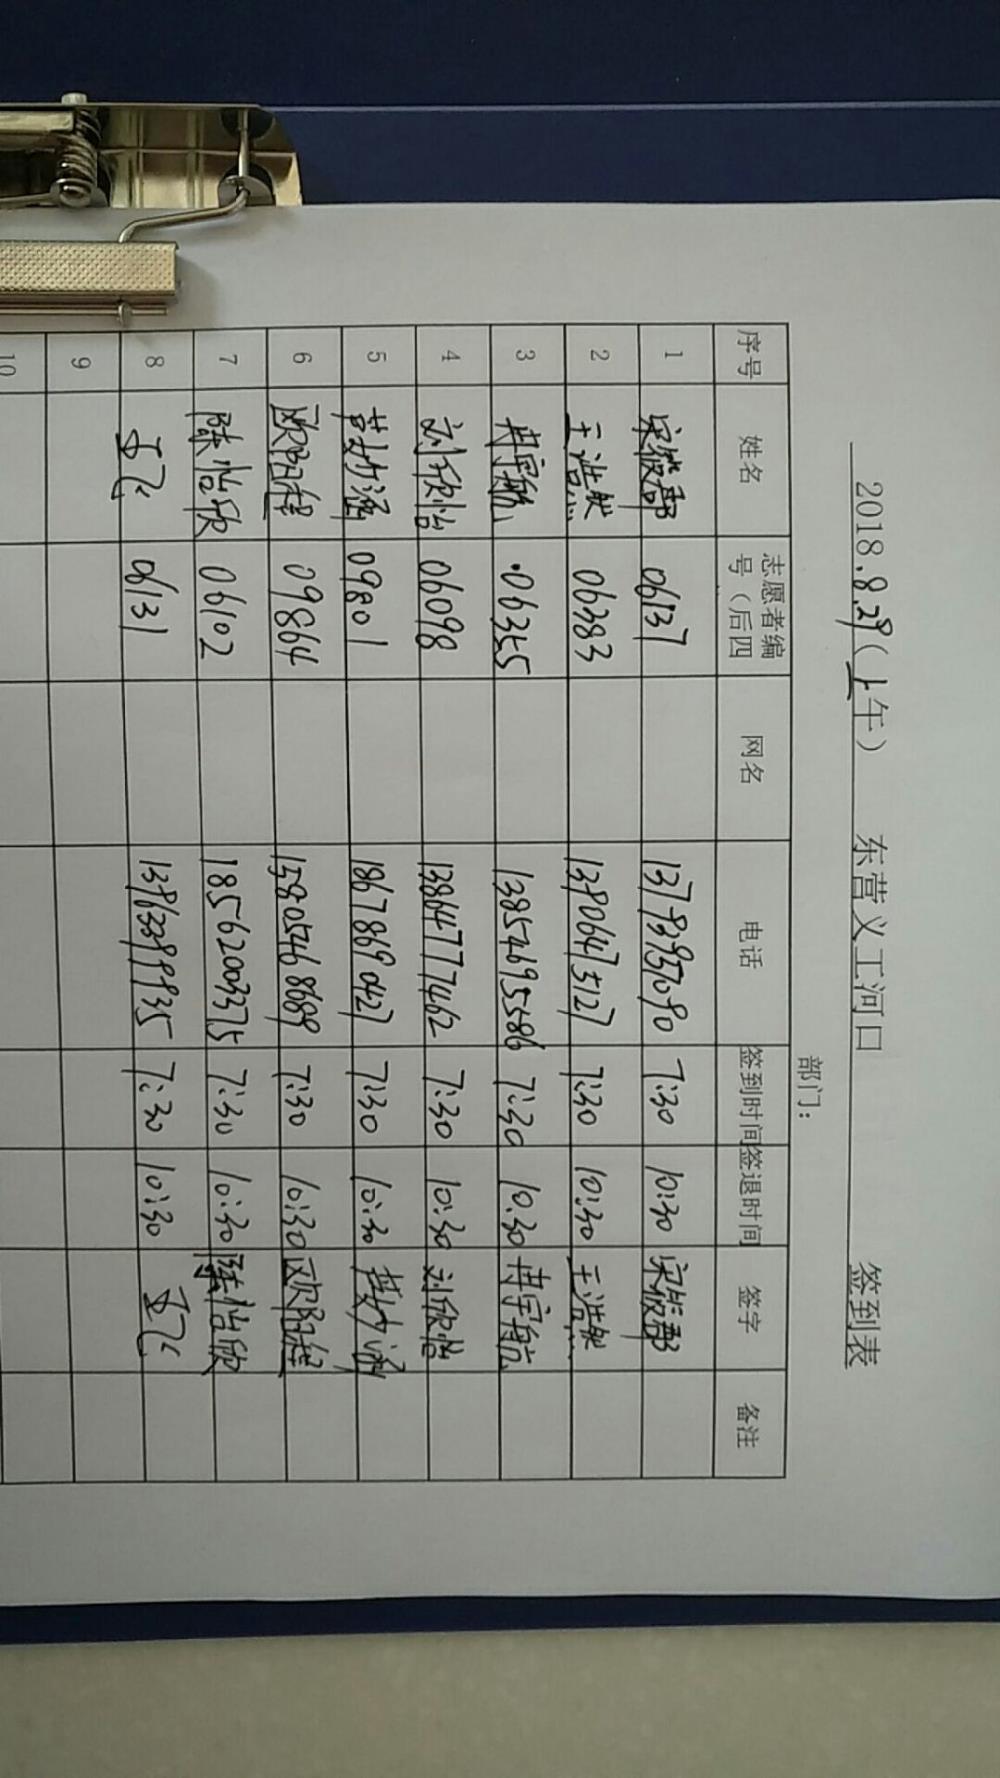 2018.8.29(上午) 东营义工河口 签到表
部门：
序号 姓名 志愿者编号（后四 网名 电话 签到时间 签退时间 签字 备注
1 06137 13793957090 7:30 10:30
2 王浩然 06383 13806475127 7:30 10:30 王浩然
3 冉宇航 06355 13854695586 7:30 10:30 冉宇航
4 刘欣怡 06098 13864777462 7:30 10:30 刘欣怡
5 09801 18678690427 7:30 10:30
6 欧阳程 09864 15805468689 7:30 10:30 欧阳程
7 陈怡欣 06102 18562003375 7:30 10:30 陈怡欣
8 06131 7:30 10:30
9
10